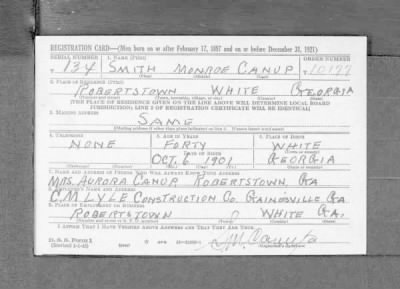 REGISTRATION CARD—(Men born on or after February 17, 1897 and on or before December 31, 1921)
SERIAL NUMBER 1. NAME (Print) ORDER NUMBER
T 134 SMITH MONROE CANUP T 10177
(First) (Middle) (Last)
2. PLACE OF RESIDENCE (Print)
ROBERTSTOWN WHITE GEORGIA
(Number and street) (Town, township, village, or city) (County) (State)
[THE PLACE OF RESIDENCE GIVEN ON THE LINE ABOVE WILL DETERMINE LOCAL BOARD
JURISDICTION; LINE 2 OF REGISTRATION CERTIFICATE WILL BE IDENTICAL]
3. MAILING ADDRESS
SAME
[Mailing address if other than place indicated on line 2. If same insert word same]
4. TELEPHONE 5. AGE IN YEARS 6. PLACE OF BIRTH
NONE FORTY WHITE
DATE OF BIRTH (Town or county)
OCT. 6 1901 GEORGIA
(Exchange) (Number) (Mo.) (Day) (Yr.) (State or country)
7. NAME AND ADDRESS OF PERSON WHO WILL ALWAYS KNOW YOUR ADDRESS
MRS. AURORA CANUP, ROBERTSTOWN, GA
8. EMPLOYER'S NAME AND ADDRESS
C.M. LYLE CONSTRUCTION CO. GAINESVILLE GA
9. PLACE OF EMPLOYMENT OR BUSINESS
ROBERTSTOWN WHITE GA.
(Number and street or R. F. D. number) (Town) (County) (State)
I AFFIRM THAT I HAVE VERIFIED ABOVE ANSWERS AND THAT THEY ARE TRUE.
D. S. S. FORM 1
(Revised 1-1-42) (over)